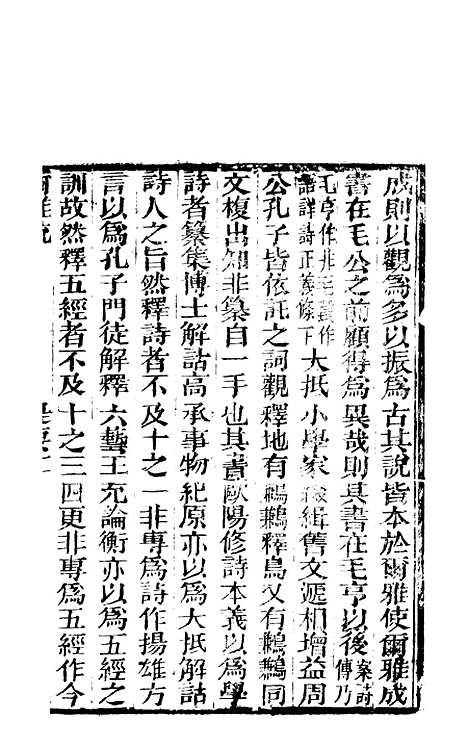 成則以觀爲多以振爲古其說皆本於爾雅使爾雅成
書在毛公之前顧得爲異哉則其書在毛亨以後案詩傳乃
毛亨作非毛萇作語詳詩正義條下大抵小學家綴緝舊文遞相增益周
公孔子皆依託之詞觀釋地有鶼鶼釋鳥又有鶼鶼同
文複出知非纂自一手也其書歐陽修詩本義以爲學
詩者纂集博士解詁高承事物紀原亦以爲大抵解詁
詩人之旨然釋詩者不及十之一非專爲詩作揚雄方
言以爲孔子門徒解釋六藝王充論衡亦以爲五經之
訓故然釋五經者不及十之三四更非專爲五經作今
爾雅疏 提要二